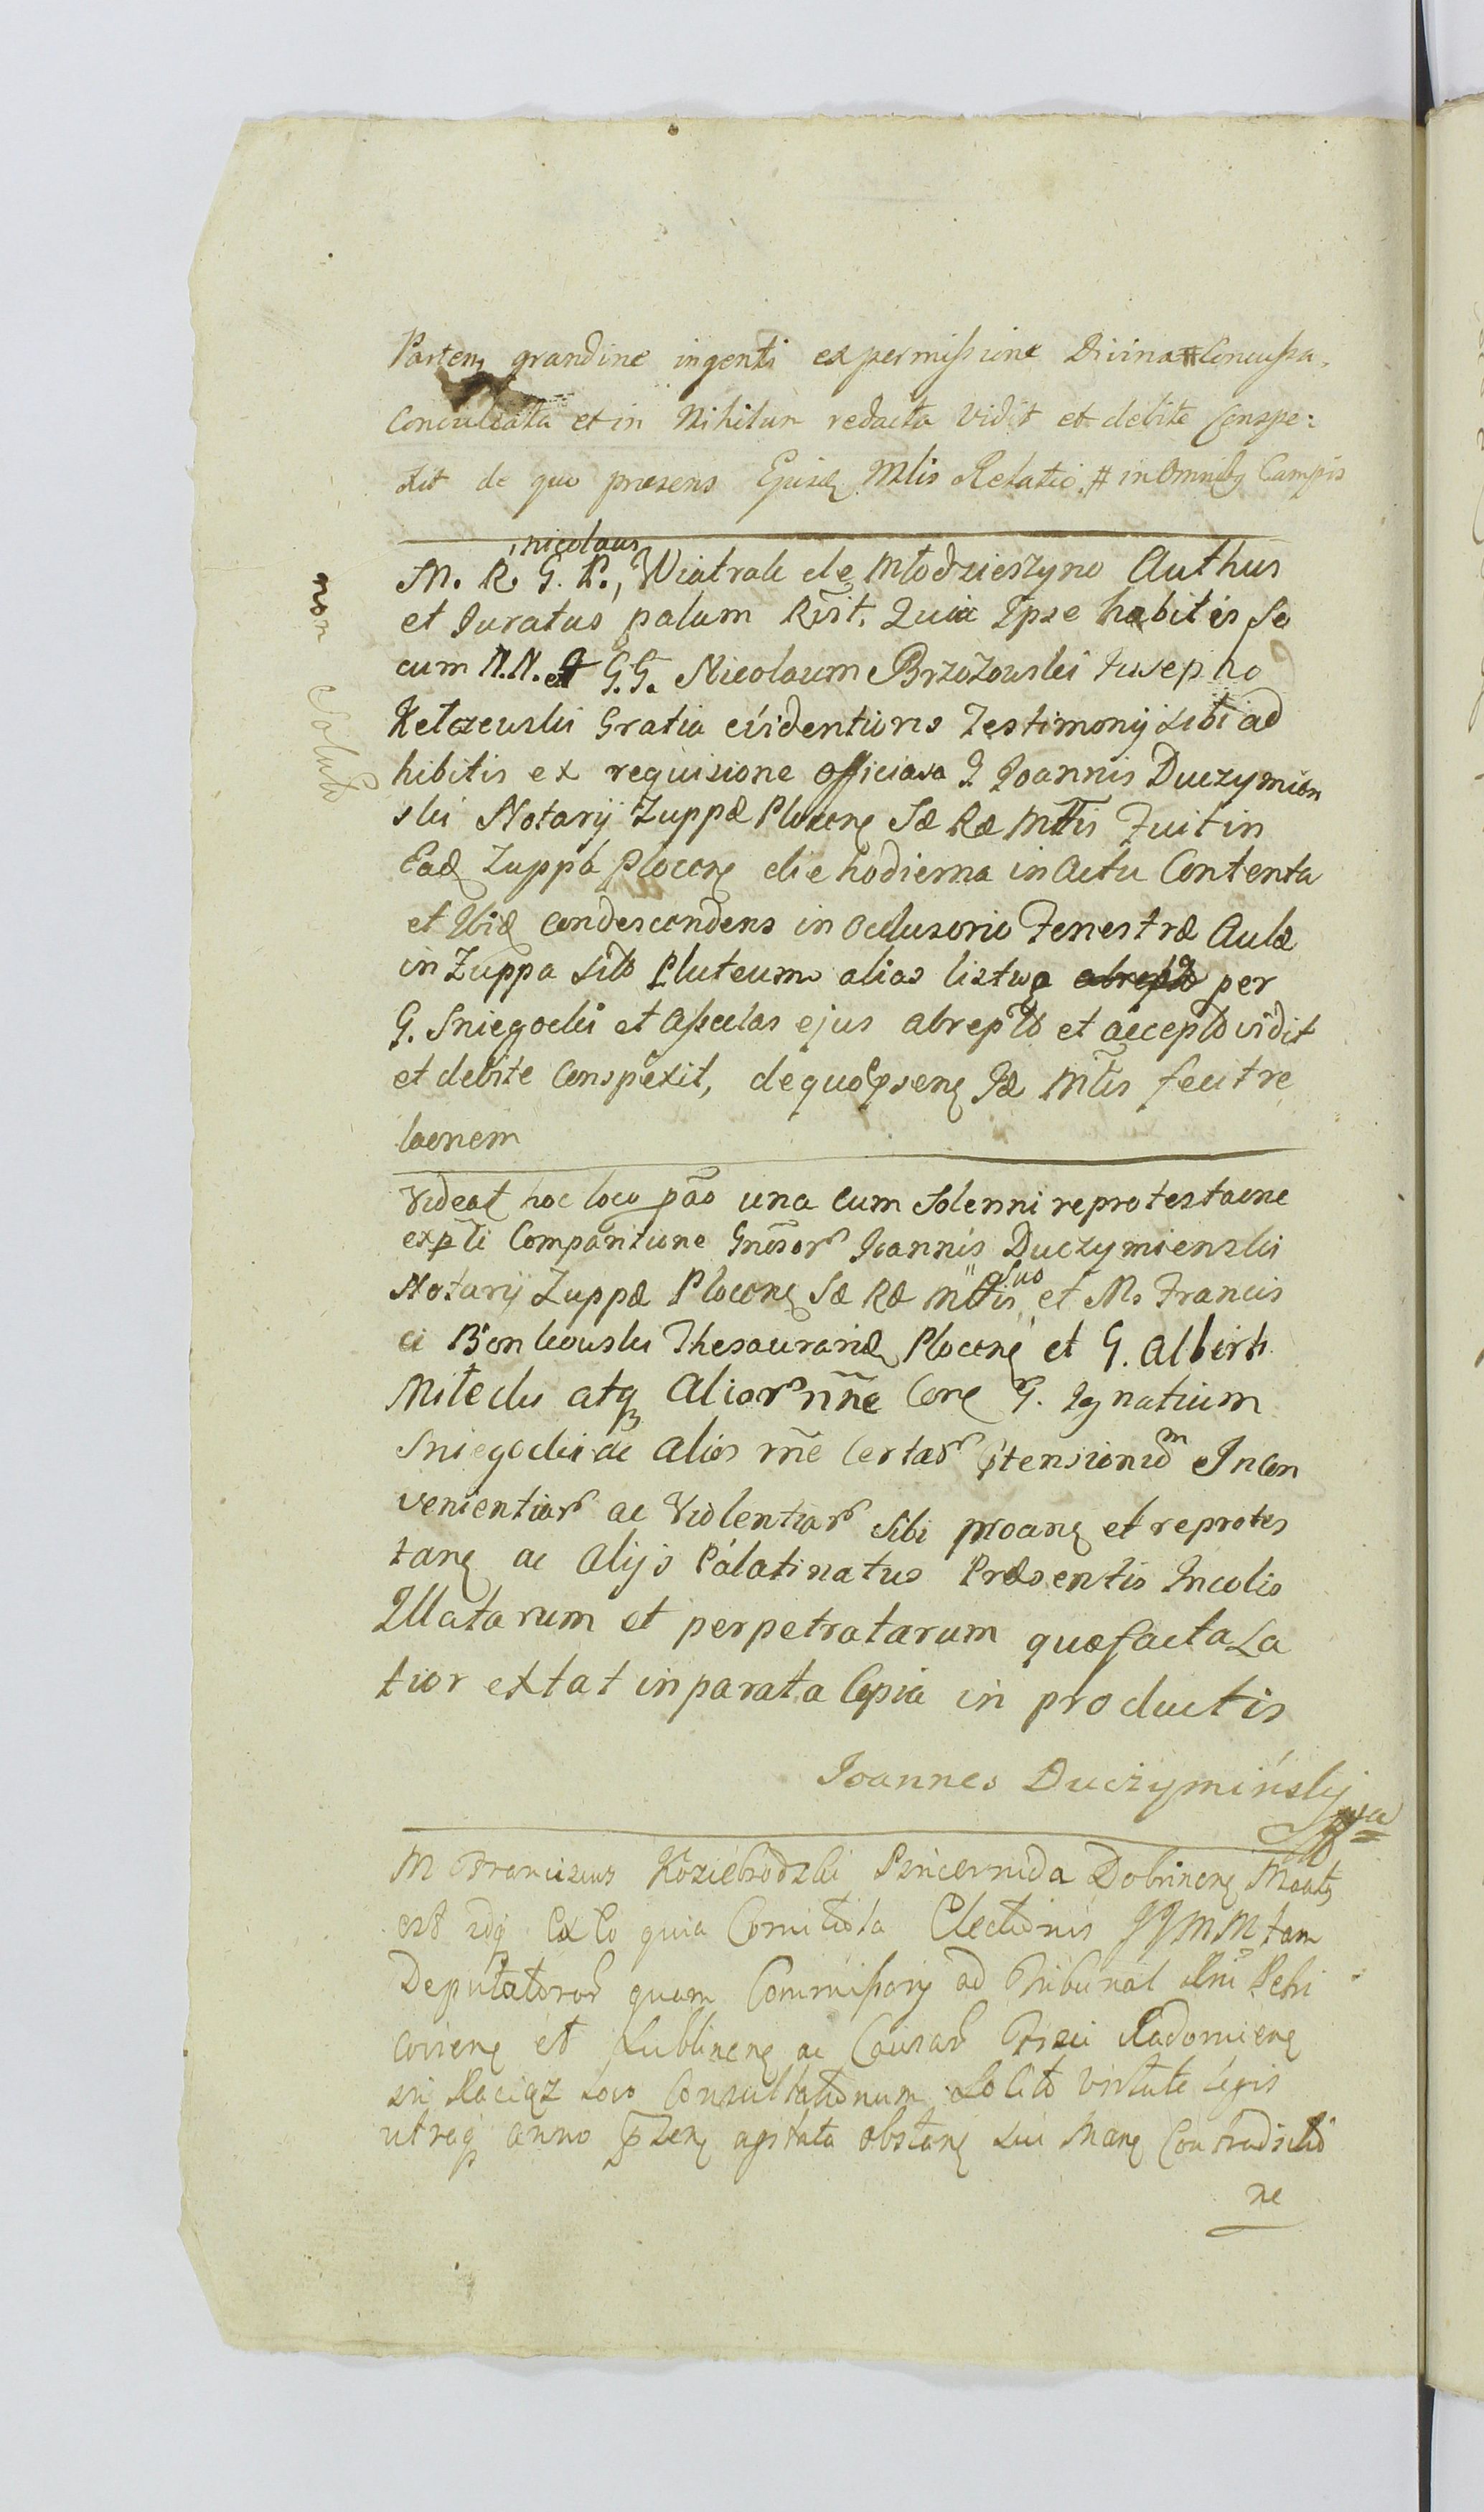 Partem grandine ingenti ex permissione Divina # Concussa.
Conculcata et in Nihilum redacta Vidit et debite Conspe:
xit de quo præsens Ejusq Mtis Relatio. # in Omnibq Campis
nicolaus
M. R. G. P., Wiatrak de Młodzieszyno Authus
et Juratus palam Rīt. Quia Ipse habitis Se
cum N.N. et G.G. Nicolaum Brzozowski Jusepho
Kełczewski Gratia evidentioris Testimonij sibi ad
hibitis ex requisione Officiosa G Joannis Duczymien
ski Notarij Zuppæ Plocenq Sæ Ræ Mttis Fuit in
Eadq Zuppa Plocenq die hodierna in Actu Contenta
et Ibidq Condescendens in Occlusorio Fenestræ Aulæ
in Zuppa sito Pluteum alias listwę per
G. Sniegocki et Asseclas ejus abrepto et accepto vidit
et debite Conspexit, de quo psenq Jæ Mtis fecit re
laonem
non
Soluto
Videat hoc loco pao una cum Solenni reprotestaone
expti Comparitione Gnosor Joannis Duczymienski
Notarij Zuppæ Plocenq Sæ Ræ Mttis suo et M. Francis
ci Bonkowski Thesauraridq Plocenq et G. Alberti
Miłecki atq Alior nne Conq G. Ignatium
Sniegocki ac Alios nne Certar ptensionum Incon
venientiar ac Violentiar Sibi proanq et reprotes
tanq ac Alijs Palatinatus Præsentis Incolis
Illatarum et perpetratarum quæ facta La
tior extat in parata Copia in productis
Joannes Duczymiński
M Franciscus Koziebrodzki Pincernida Dobrinenq
est idq Ex Eo quia Comitiola Electionis JJMM tam
Deputator quam Commissarij ad Tribunal Rni Petri
covienq et Lublinenq ac Causar Fisci Radomienq
in Raciąż Loco Consultationum Solito Virtute Legis
utreqp anno pzenq agitata obstanq sui Manq Contradictio
ne